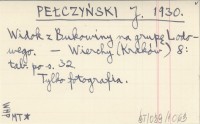 PEŁCZYŃSKI J. 1930.
Widok z Bukowiny na grupę Lodo-
wego. — Wierchy (Kraków) 8:
tab. po s. 32
Tylko fotografia.
WHP
MT*